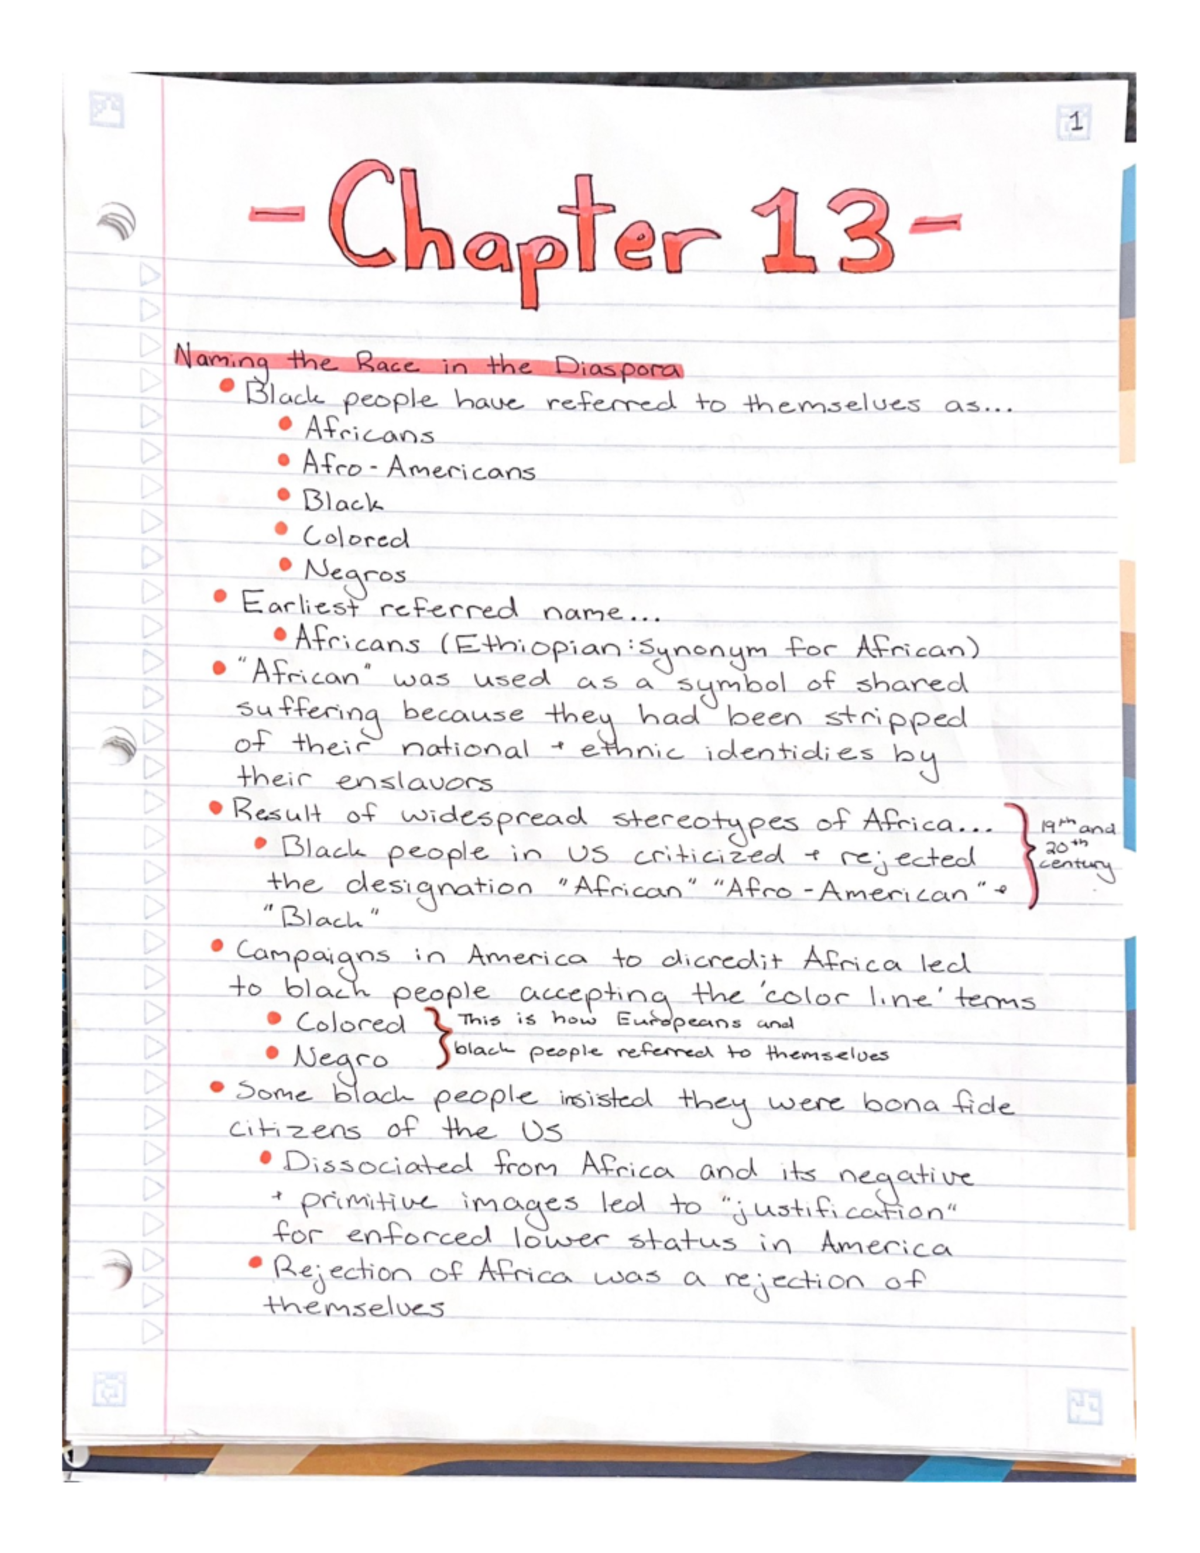 1
- Chapter 13 -
Naming the Race in the Diaspora
• Black people have referred to themselves as...
• Africans
• Afro-Americans
• Black
• Colored
• Negros
• Earliest referred name...
• Africans (Ethiopian: Synonym for African)
• "African" was used as a symbol of shared
suffering because they had been stripped
of their national + ethnic identidies by
their enslavors
• Result of widespread stereotypes of Africa...
• Black people in US criticized + rejected
the designation "African" "Afro-American" +
"Black"
19th and
20th
century
• Campaigns in America to dicredit Africa led
to black people accepting the 'color line' terms
• Colored
• Negro
This is how Europeans and
black people referred to themselves
• Some black people insisted they were bona fide
citizens of the US
• Dissociated from Africa and its negative
+ primitive images led to "justification"
for enforced lower status in America
• Rejection of Africa was a rejection of
themselves